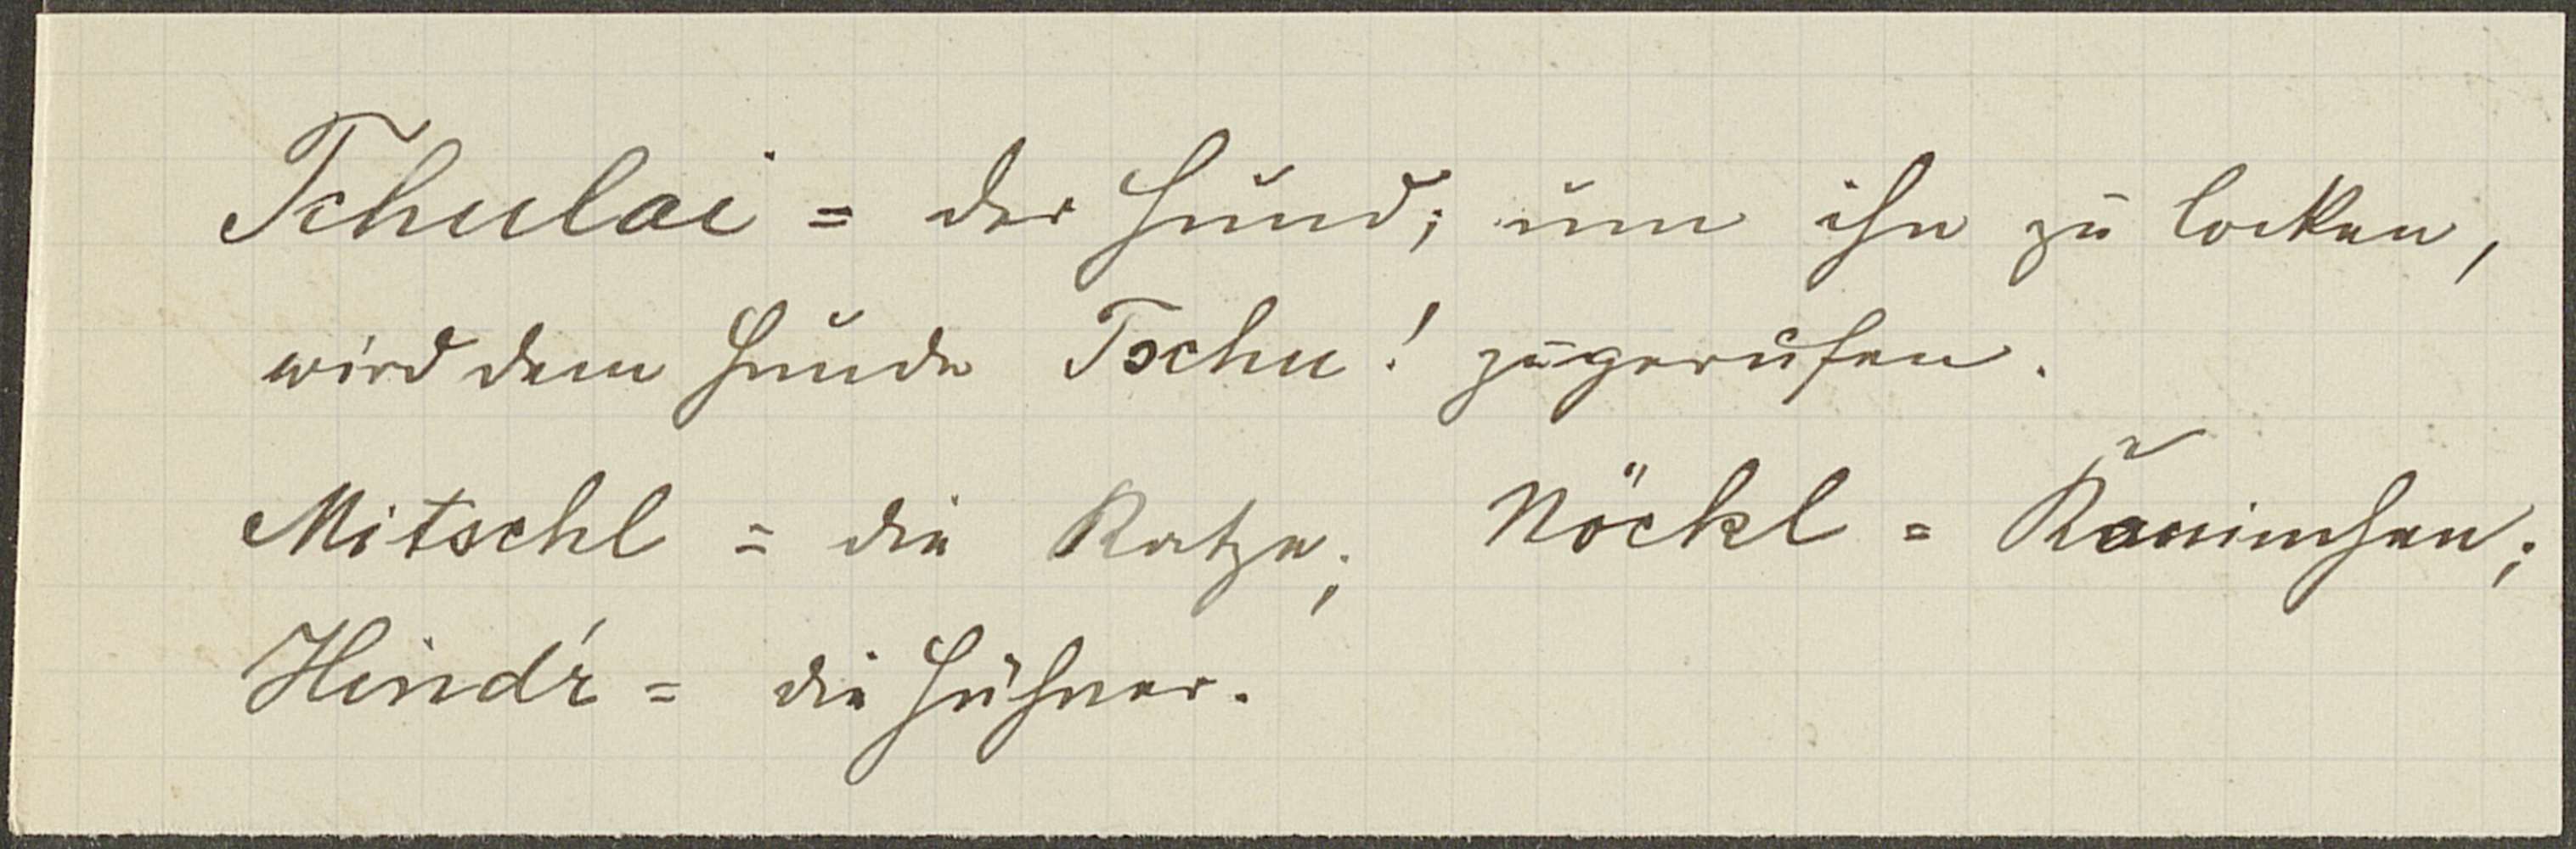 Tschulai = der Hund; um ihn zu locken,
wird dem Hunde Tschu! zugerufen.
Mitschl = die Katze; Nöckl = Kaninchen;
Hind'r = die Hühner.